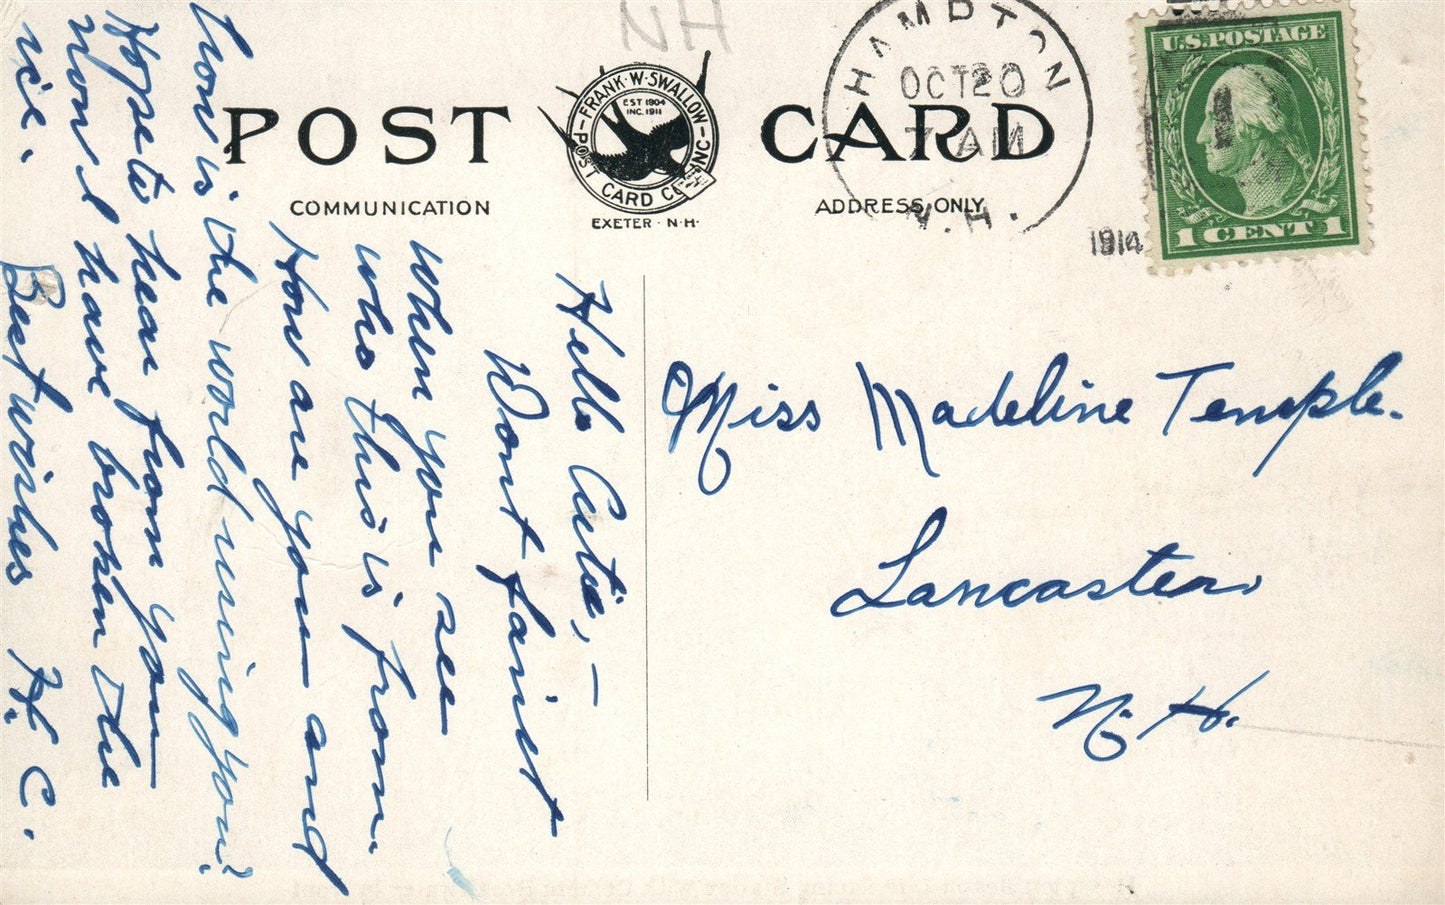 NH
POST CARD
FRANK·W·SWALLOW
POST CARD CO INC
EST 1904
INC. 1911
EXETER · N·H·
COMMUNICATION
ADDRESS ONLY
HAMPTON
OCT 20
7 AM
N.H.
1914
U.S. POSTAGE
1 CENT 1
Hello Cutie,—
Dont faint
when you see
who this is from.
How are you and
how is the world using you?
Hope to hear from you
now I have broken the
ice.
Best wishes H. C.
Miss Madeline Temple.
Lancaster
N. H.